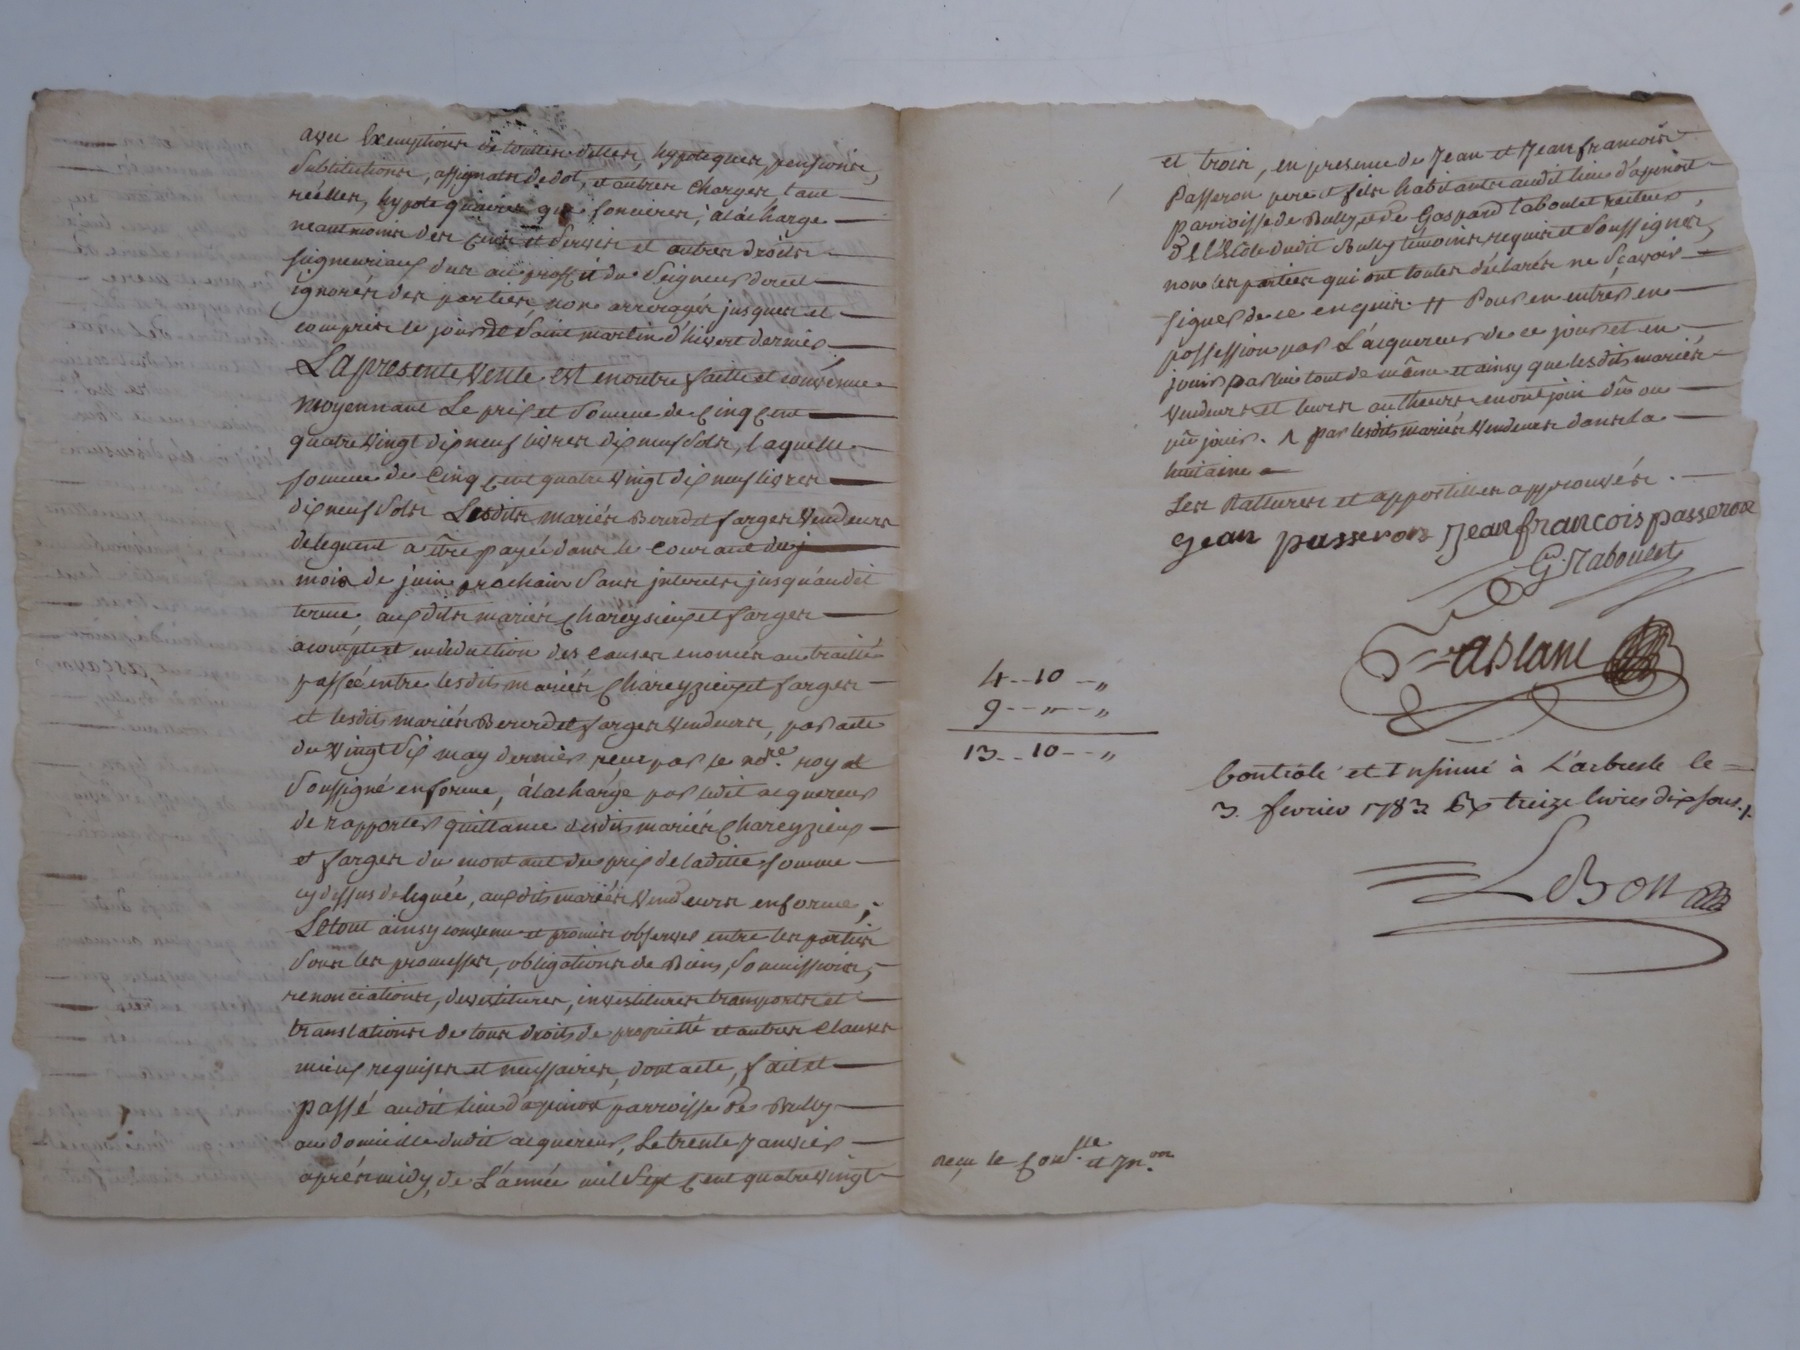 avec Exemptions de touttes dettes, hypoteques, pensions,
Substitutions, assignats de dot, et autres charges tant
réelles, hypotequaires que foncieres, à la charge
neantmoins des cens et Servis et autres droits
seigneuriaux dus au proffit du Seigneur direct
ignorés des parties non arreragés jusques et
compris le jour de Saint martin d'hivert dernier
La presente Vente est en outre faitte et convenüe
moyennant Le prix et Somme de Cinq Cent
quatre Vingt dix neuf livres dix neuf Sols, laquelle
somme de Cinq Cent quatre Vingt dix neuf livres
dix neuf Sols Lesdits mariés Bererd et farges Vendeurs
deleguent a être payée dans le courant du
mois de juin prochain Sans interets jusqu'audit
terme, auxdits mariés Chareyzieux et farges
acompte et en deduction des causes enoncés au traitté
passé entre lesdits mariés Chareyzieux et farges
et lesdits mariés Bererd et farges Vendeurs, par acte
du Vingt Six may dernier reçu par le nore. royal
Soussigné en forme, à la charge par ledit acquereur
de rapporter quittance desdits mariés Chareyzieux
et farges du montant du prix de ladite somme
cy dessus deleguée, auxdits mariés Vendeurs en forme,
Le tout ainsy convenu et promis observer entre les parties
Sous les promesses, obligations de Biens, Soumissions,
renonciations, devestitures, investitures transports et
translations de tous droits de proprietté et autres clauses
mieux requises et necessaires, dont acte, fait et
passé audit lieu d'apinost parroisse de Bully
au domicille dudit acquereur, Le trente Janvier
aprés midy, de L'année mil Sept Cent quatre vingt
et trois, en presence de Jean et Jean francois
Passeron pere et fils habitants audit lieu d'apinost
parroisse de Bully et de Gaspard taboulet recteur
De l'Ecole dudit Bully temoins requis et Soussignés,
non les parties qui ont toutes déclarés ne Sçavoir
signer de ce enquis. # Pour en entrer en
possession par L'acquereur de ce jour et en
jouir par lui tout de même et ainsy que lesdits mariés
Vendeurs et leurs autheurs en ont joui dû ou
pû jouir. ^ par lesdits mariés Vendeurs dans la
huitaine
Les Ratturés et appostilles approuvés.
jean passeron Jean francois passeron
G. Taboulet
4 -- 10 -- "
9 -- " -- "
13 -- 10 -- "
Controlé et Insinué à L'arbresle le
3. fevrier 1783 Rx treize livres dix sous ./.
LeBon
reçu le Conlle. et Inon.